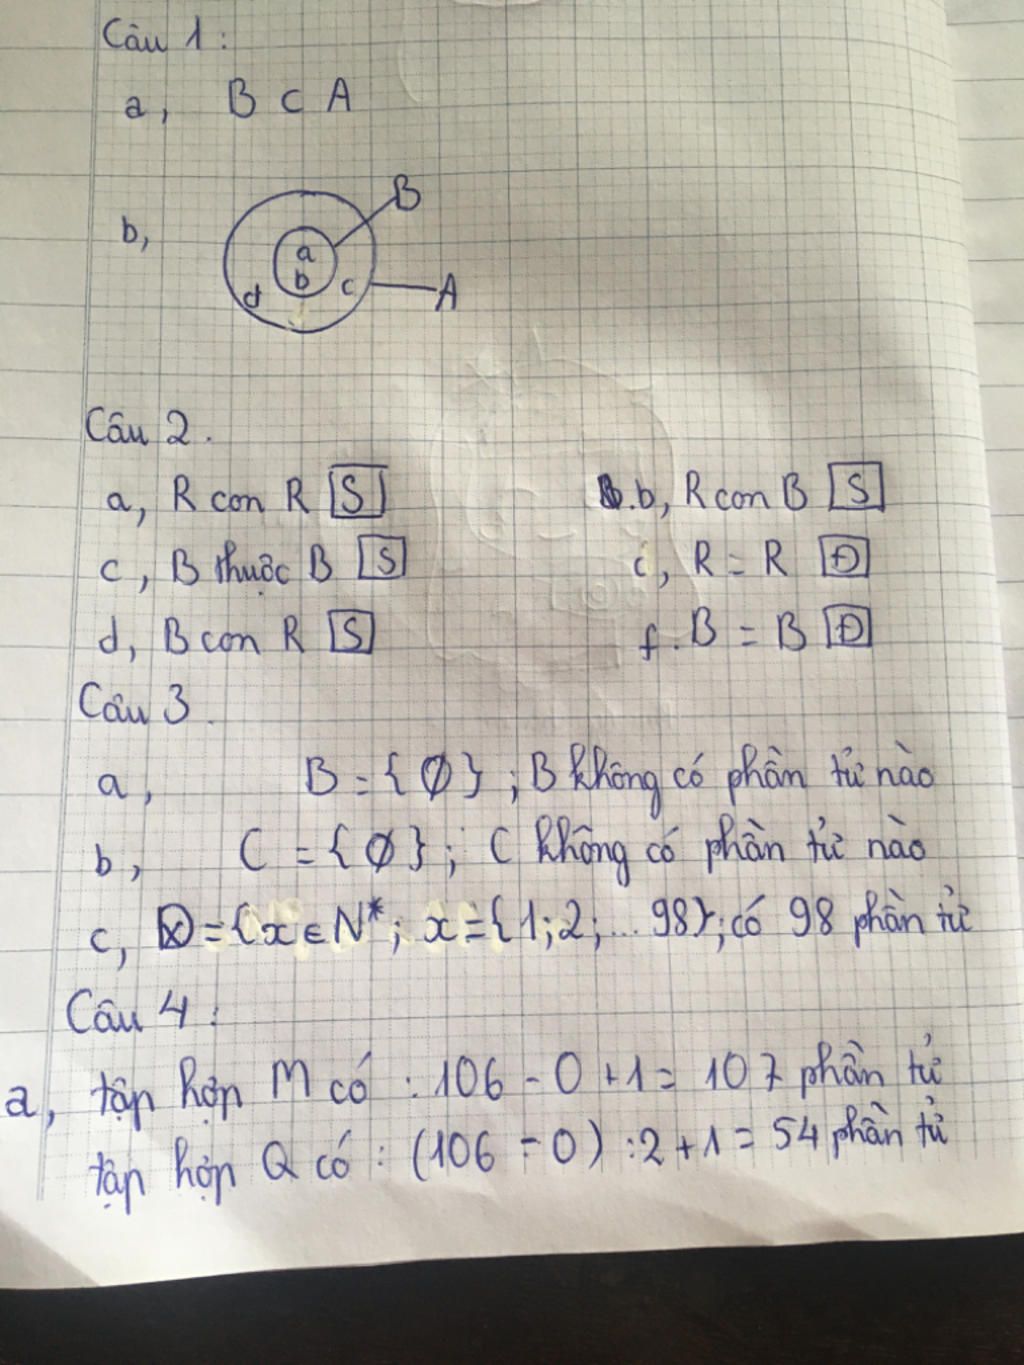 Câu 1:
a, B ⊂ A
b,
B
a
b
c
d
A
Câu 2.
a, R con R S
b, R con B S
c, B thuộc B S
c, R = R Đ
d, B con R S
f. B = B Đ
Câu 3.
a, B = {Ø}; B không có phần tử nào
b, C = {Ø}; C không có phần tử nào
c, D = {x ∈ N*; x = {1; 2; ... 98}; có 98 phần tử
Câu 4:
a, tập hợp M có : 106 - 0 + 1 = 107 phần tử
tập hợp Q có : (106 - 0) : 2 + 1 = 54 phần tử